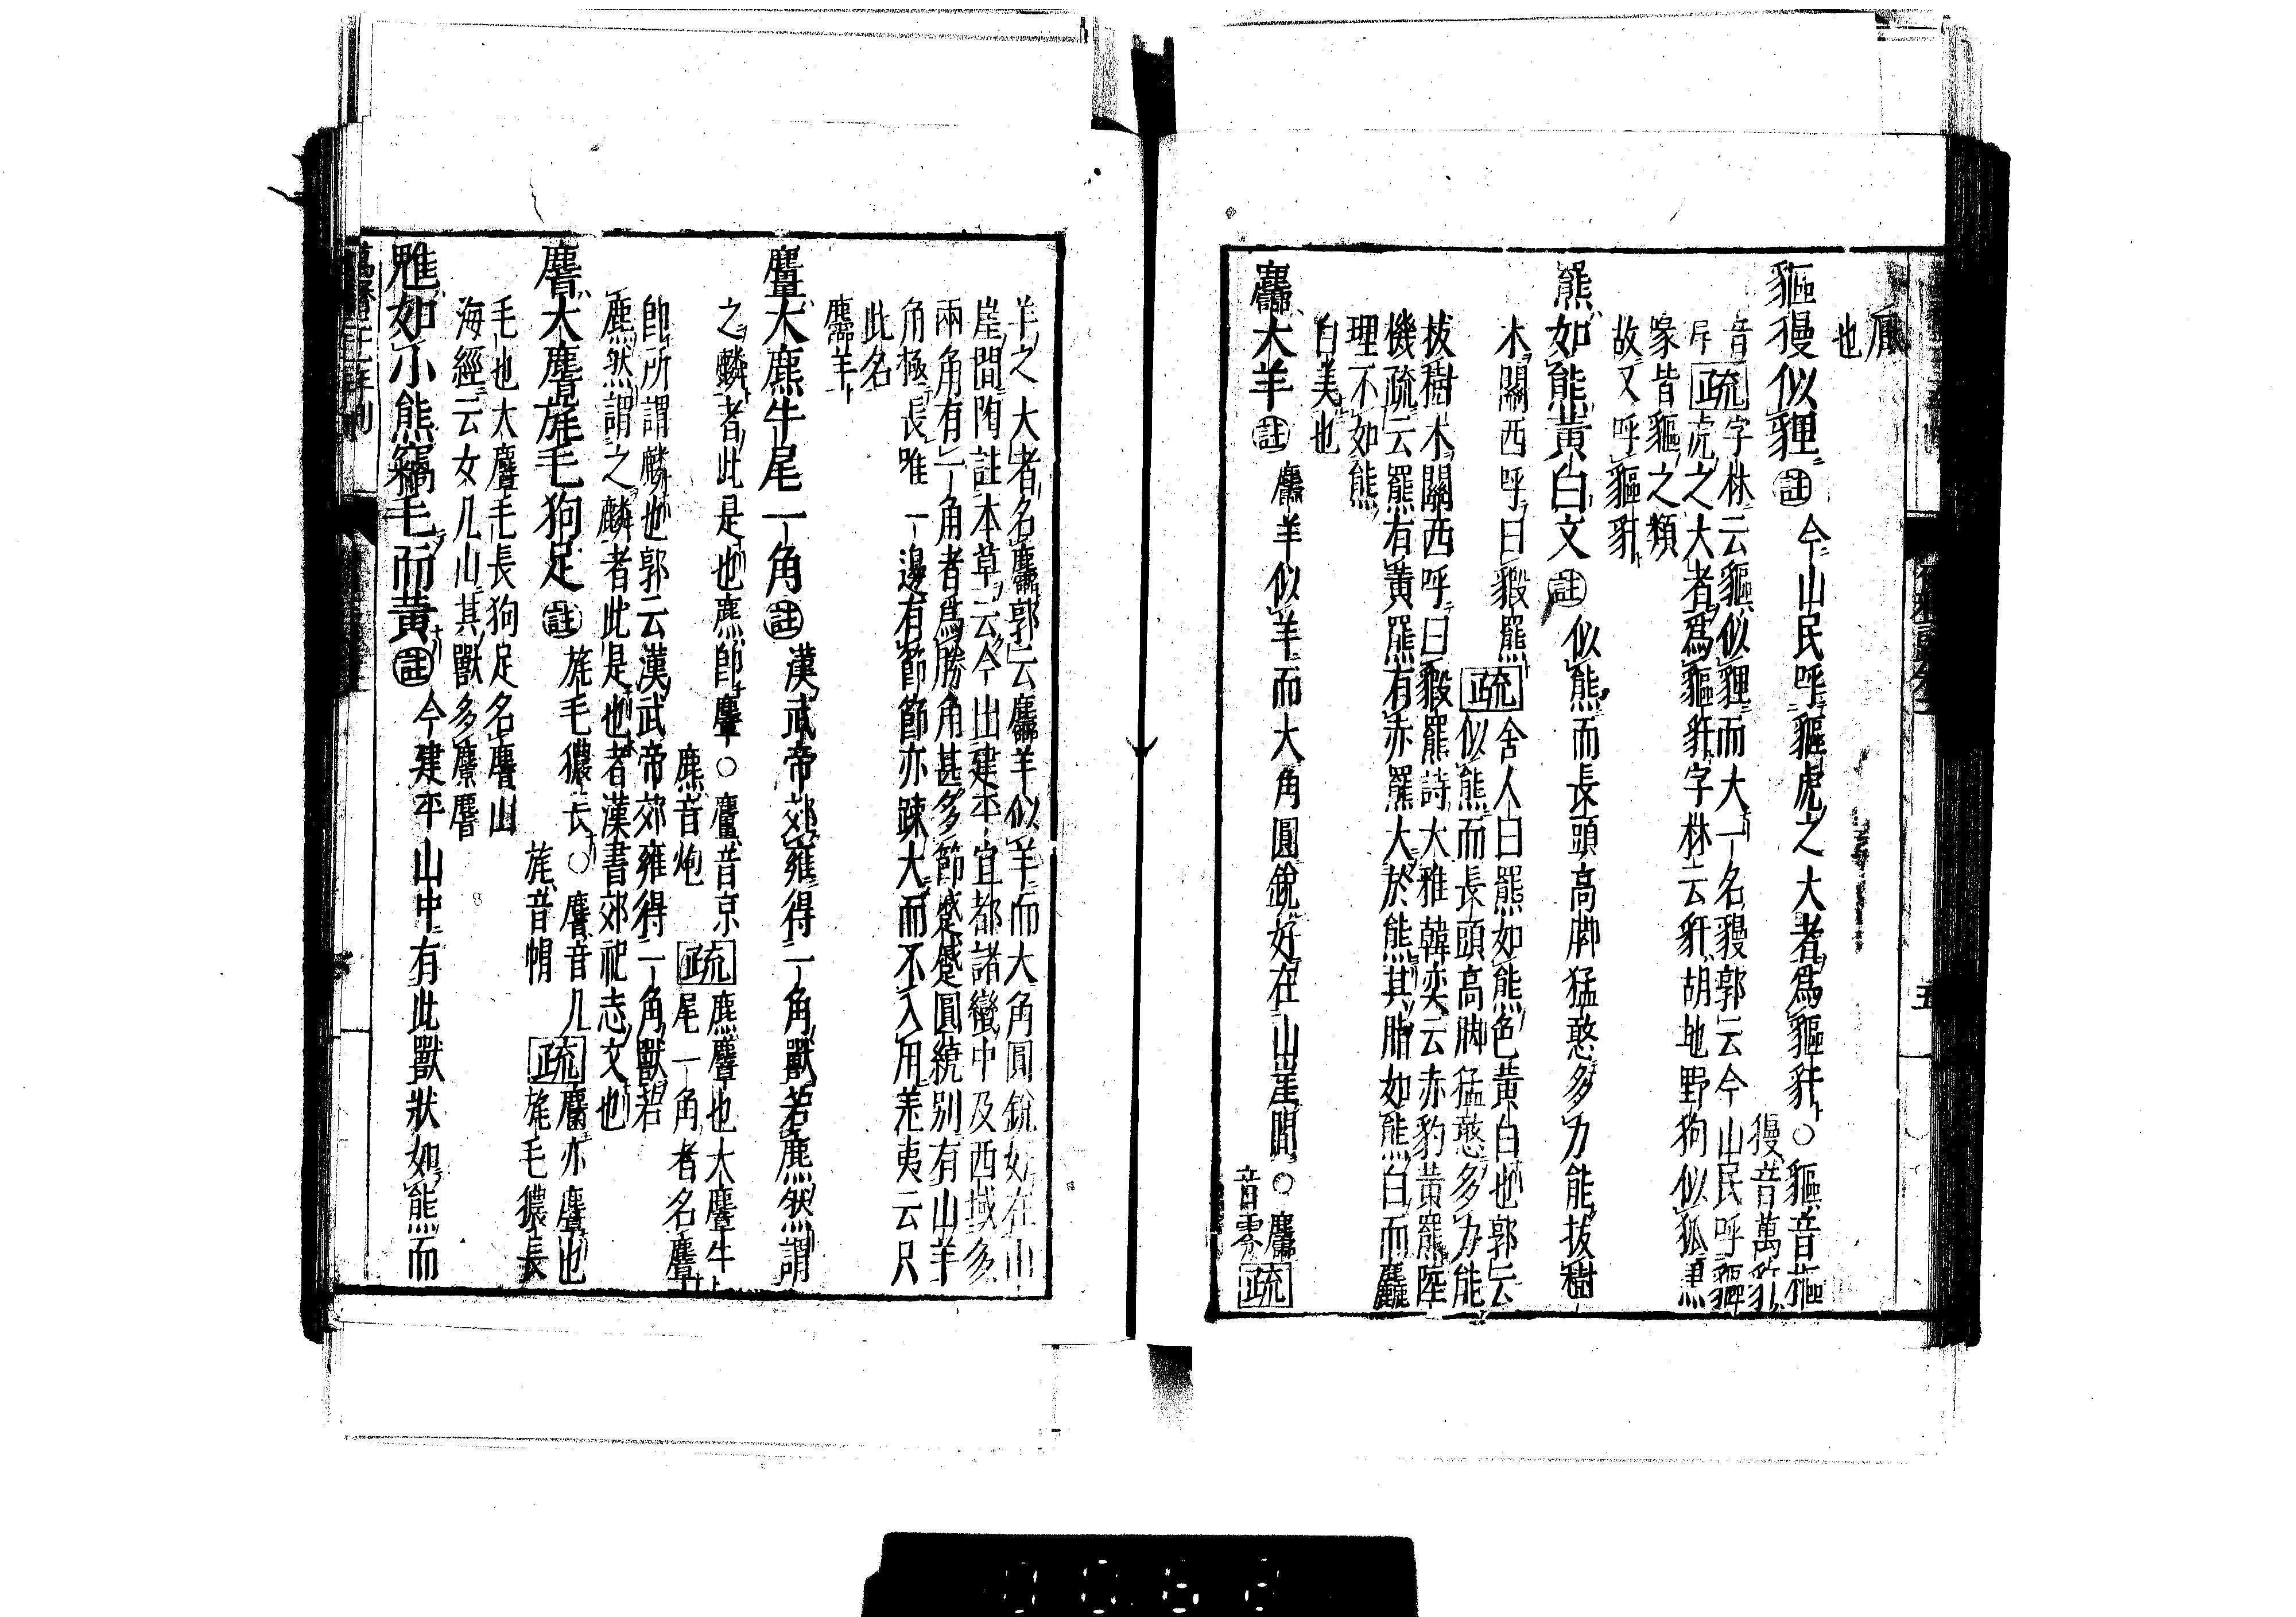 也
貙獌似貍㊟今山民呼貙虎之大者爲貙豻○貙音樞
獌音萬豻
音岸
疏字林云貙似貍而大一名獌郭云今山民呼貙
虎之大者爲貙豻字林云豻胡地野狗似狐黑
喙皆貙之類
故又呼貙豻
羆如熊黃白文㊟似熊而長頭高脚猛憨多力能拔樹
木關西呼曰貑羆疏舍人曰羆如熊色黃白也郭云
似熊而長頭高脚猛憨多力能
拔樹木關西呼曰貑羆詩大雅韓奕云赤豹黃羆陸
機疏云羆有黃羆有赤羆大於熊其脂如熊白而麤
理不如熊
白美也
麢大羊㊟麢羊似羊而大角圓銳好在山崖間○麢
音零疏
羊之大者名麢郭云麢羊似羊而大角圓銳好在山
崖間陶註本草云今出建平宜都諸蠻中及西域多
兩角有一角者爲勝角甚多節蹙蹙圓繞別有山羊
角極長唯一邊有節節亦疎大而不入用羌夷云尺
此名
麢羊
麠大麃牛尾一角㊟漢武帝郊雍得一角獸若麃然謂
之麟者此是也麃卽麠○麠音京
麃音炮疏麃麠也大麠牛
尾一角者名麠
卽所謂麟也郭云漢武帝郊雍得一角獸若
麃然謂之麟者此是也者漢書郊祀志文也
麐大麕旄毛狗足㊟旄毛獶長○麐音几
旄音帽疏麕亦麞也
旄毛獶長
毛也大麞毛長狗足名麐山
海經云女几山其獸多麖麐
魋如小熊竊毛而黃㊟今建平山中有此獸狀如熊而